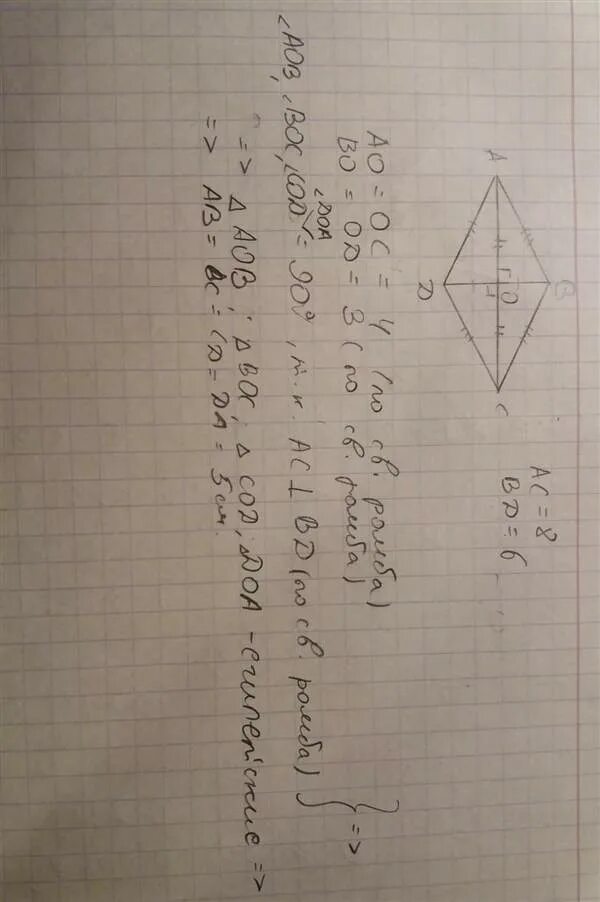 A
B
O
D
C
AC = 8
BD = 6
AO = OC = 4 (по св. ромба)
BO = OD = 3 (по св. ромба)
∠DOA
∠AOB, ∠BOC, ∠COD = 90°, т.к. AC ⊥ BD (по св. ромба) } =>
=> △ AOB; △ BOC; △ COD; △DOA - египетские =>
=> AB = BC = CD = DA = 5 см.